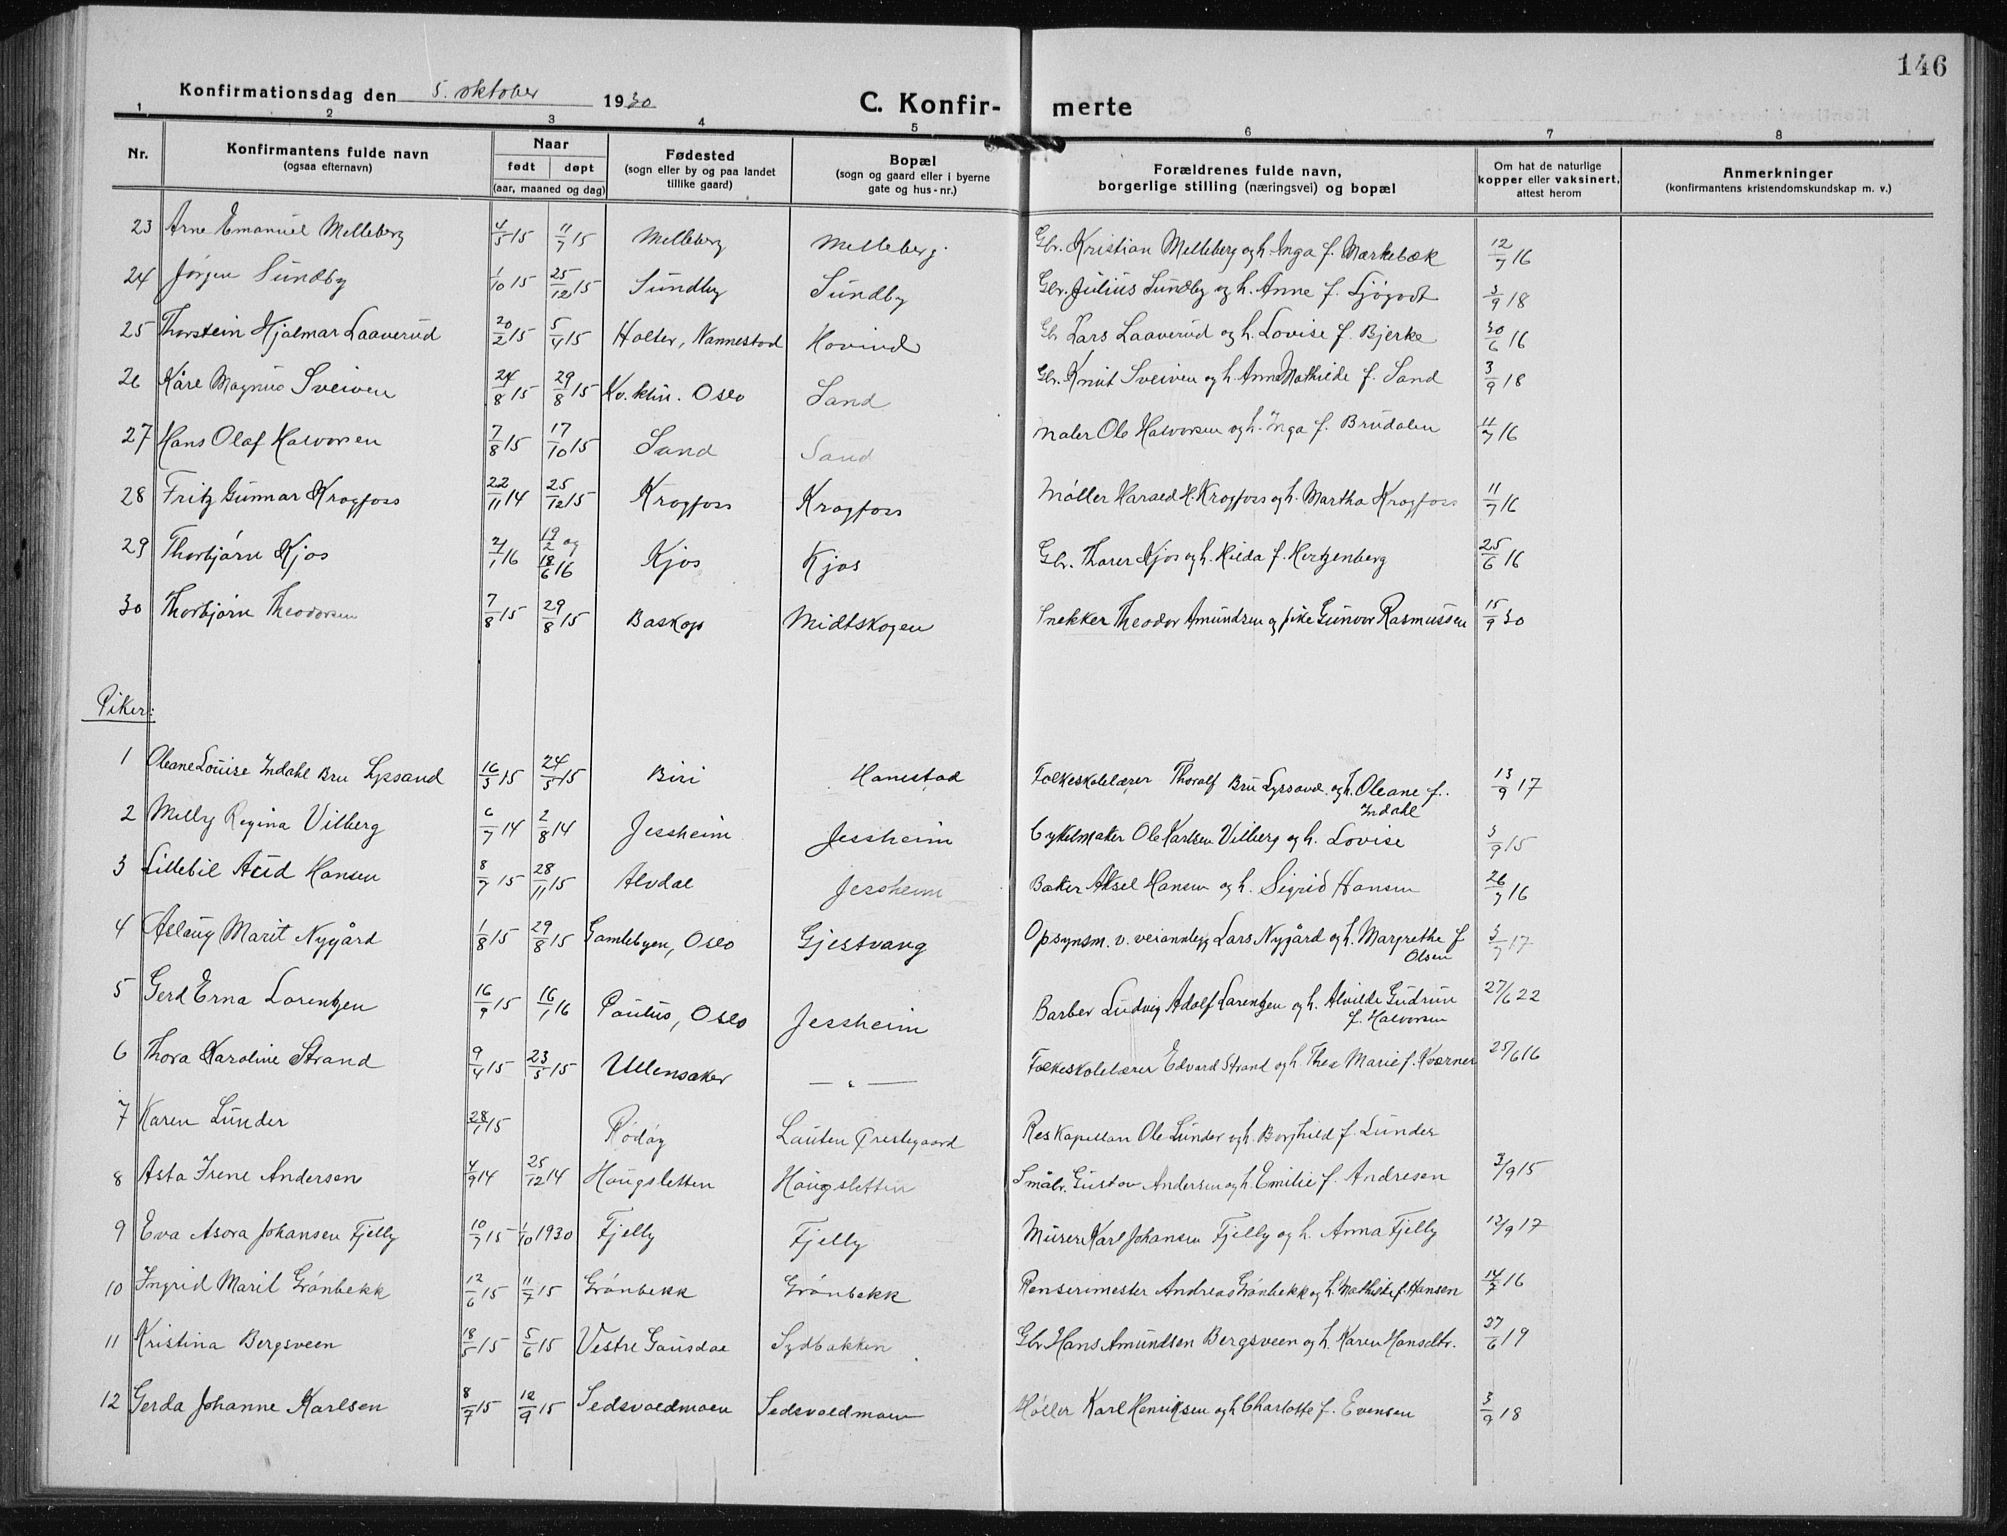 146
Konfirmationsdag den 5. oktober 1930
C. Konfir- merte
1 2 3 4 5 6 7 8
Nr. Konfirmantens fulde navn (ogsaa efternavn) Naar født døpt (aar, maaned og dag) Fødested (sogn eller by og paa landet tillike gaard) Bopæl (sogn og gaard eller i byerne gate og hus-nr.) Forældrenes fulde navn, borgerlige stilling (næringsvei) og bopæl Om hat de naturlige kopper eller vaksinert, attest herom Anmerkninger (konfirmantens kristendomskundskap m. v.)
23 Arne Emanuel Melleberg 4/5 15 11/7 15 Melleberg Melleberg. Gbr. Kristian Melleberg og h. Inga f. Mærkebæk 12/7 16
24 Jørgen Sundby 1/10 15 25/12 15 Sundby Sundby Gbr. Julius Sundby og h. Anne f. Ljøgodt 3/9 18
25 Thorstein Hjalmar Laaverud 20/2 15 5/4 15 Holter, Nannestad Hovind Gb Lars Laaverud og h. Lovise f. Bjerke 30/6 16
26 Kåre Magnus Sveiven 24/8 15 29/8 15 Kv. klin. Oslo Sand Gbr. Knut Sveiven og h. Anna Mathilde f. Sand 3/9 18
27 Hans Olaf Halvorsen 7/8 15 17/10 15 Sand Sand Maler Ole Halvorsen og h. Inga f. Brudalen 11/7 16
28 Fritz Gunnar Krogfoss 22/11 14 25/12 15 Krogfoss Krogfoss Møller Harald H. Krogfoss og h. Martha Krogfoss 11/7 16
29 Thorbjørn Kjos 2/1 16 19/2 og 18/6 16 Kjos Kjos Gbr. Thorer Kjos og h. Hilda f. Hertzenberg 25/6 16
30 Thorbjørn Theodorsen 7/8 15 29/8 15 Baskop Midtskogen Snekker Theodor Amundsen og pike Gunvor Rasmussen 15/9 30
Piker:
1 Oleane Louise Indahl Bru Lyssand 16/3 15 24/5 15 Biri Hanestad Folkeskolelærer Thoralf Bru Lyssand. og h. Oleane f. Indahl 13/9 17
2 Milly Regina Vilberg 6/7 14 2/8 14 Jessheim Jessheim Cykelmaker Ole Karlsen Vilberg og h. Lovise 3/9 15
3 Lillebil Aud Hansen 8/7 15 28/11 15 Alvdal Jessheim Baker Aksel Hansen og h. Sigrid Hansen 26/7 16
4 Aslaug Marit Nygård 1/8 15 29/8 15 Gamlebyen, Oslo Gjestvang Opsynsm. v. veianlegg Lars Nygård og h. Margrethe f Olsen 3/7 17
5 Gerd Erna Lorentzen 16/9 15 16/1 16 Paulus, Oslo Jessheim Barber Ludvig Adolf Lorentzen og h. Alvilde Gudrun f. Halvorsen 27/6 22
6 Thora Karoline Strand 9/4 15 23/5 15 Ullensaker — " — Folkeskolelærer Edvard Strand og h. Thea Marie f. Kværner 25/6 16
7 Karen Lunder 28/1 15 Rødøy Lauten Prestegaard Res Kapellan Ole Lunder og h. Borghild f. Lunder
8 Asta Irene Andersen 4/9 14 25/12 14 Haugsletten Haugsletten Småbr. Gustav Andersen og h. Emilie f. Andresen 3/9 15
9 Eva Asora Johansen Fjelly 10/7 15 1/10 1930 Fjelly Fjelly Murer Karl Johansen Fjelly og h. Anna Fjelly 13/9 17
10 Ingrid Marit Grønbekk 12/6 15 11/7 15 Grønbekk Grønbekk Renserimester Andreas Grønbekk og h. Mathilde f. Hansen 14/7 16
11 Kristina Bergsveen 18/5 15 5/6 15 Vestre Gausdal Sydbakken Gbr Hans Amundsen Bergsveen og h. Karen Hansdtr. 27/6 19
12 Gerda Johanne Karlsen 8/7 15 12/9 15 Sedsvoldmoen Sedsvoldmoen Møller Karl Henriksen og h Charlotte f. Evensen 3/9 18